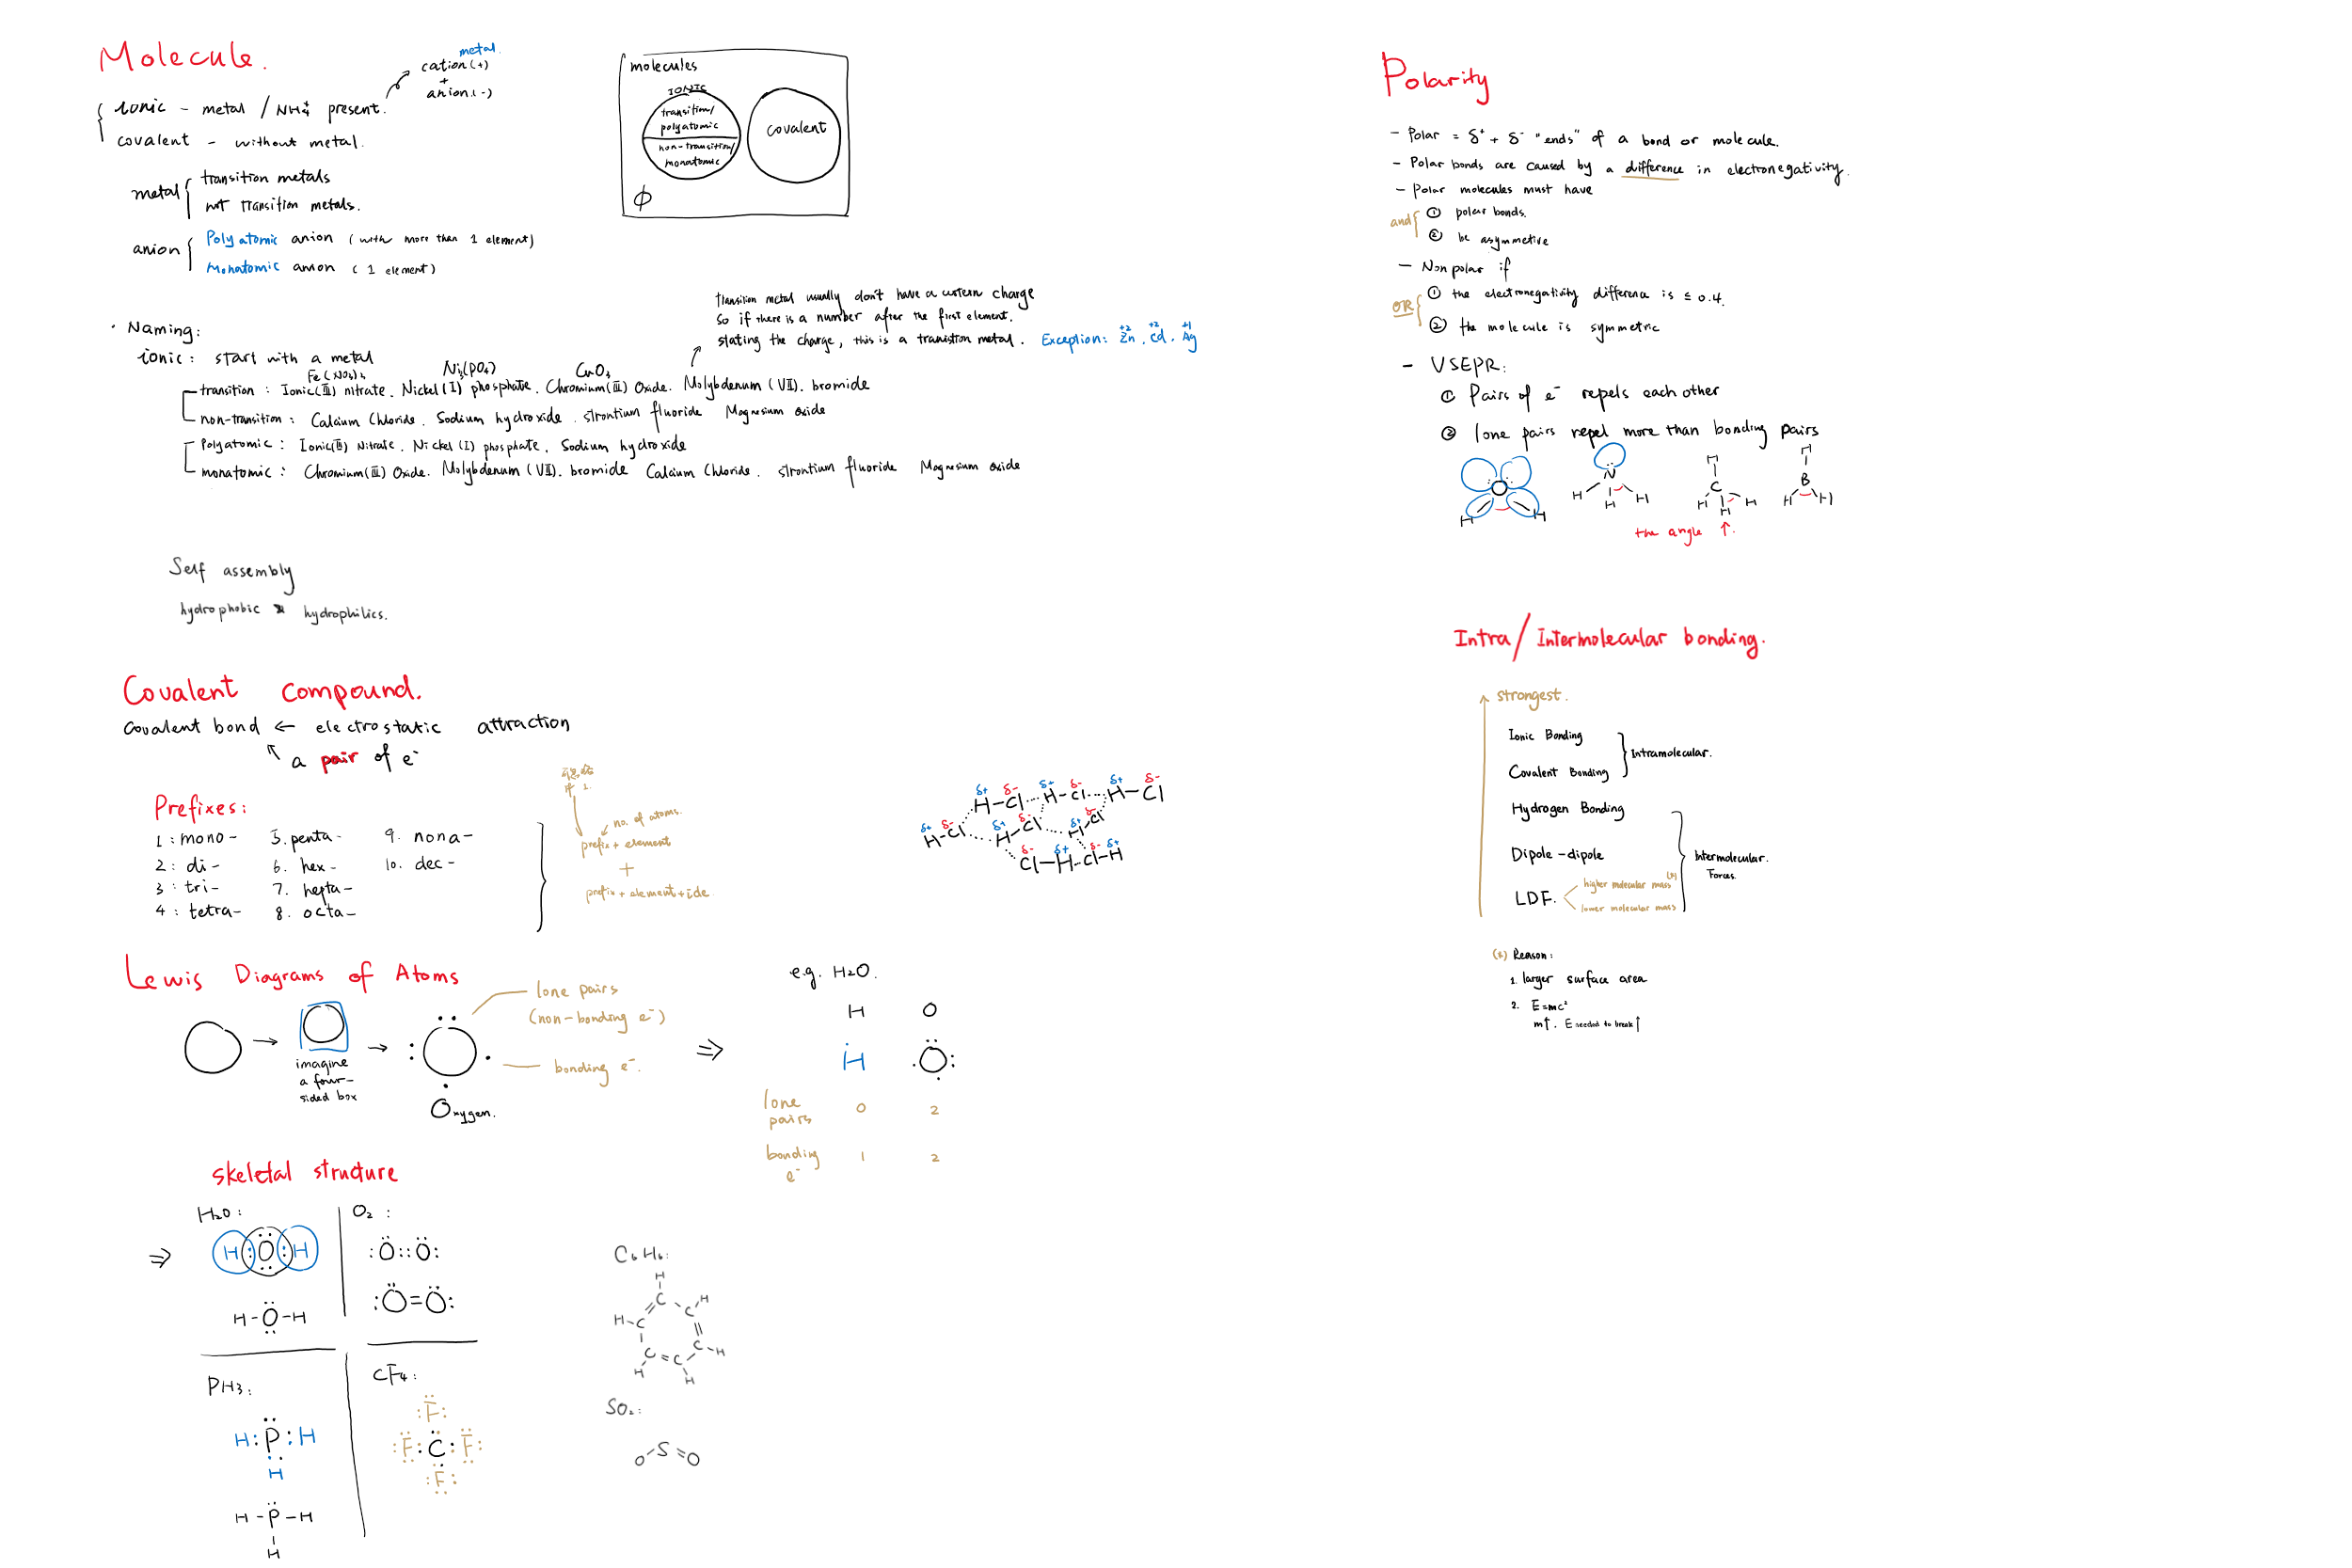 Molecule.
ionic - metal / NH4+ present.
metal.
cation (+)
+
anion (-)
covalent - without metal.
metal
transition metals
not transition metals.
anion
Polyatomic anion ( with more than 1 element)
Monatomic anion ( 1 element)
molecules
IONIC
transition/
polyatomic
non-transition/
monatomic
covalent
Φ
transition metal usually don't have a certern charge
so if there is a number after the first element.
stating the charge, this is a transition metal. Exception: Zn+2, Cd+2, Ag+1
· Naming:
ionic: start with a metal
Fe(NO3)3
Ni3(PO4)
CrO3
transition : Ionic(III) nitrate. Nickel(I) phosphate. Chromium(III) Oxide. Molybdenum (VII). bromide
non-transition : Calcium Chloride. Sodium hydroxide. strontium fluoride Magnesium oxide
Polyatomic : Ionic(III) Nitrate. Nickel (I) phosphate. Sodium hydroxide
monatomic : Chromium(III) Oxide. Molybdenum (VII). bromide Calcium Chloride. strontium fluoride Magnesium oxide
Self assembly
hydrophobic & hydrophilics.
Covalent compound.
covalent bond ← electrostatic attraction
a pair of e-
Prefixes:
1 : mono- 5. penta- 9. nona-
2 : di- 6. hex- 10. dec-
3 : tri- 7. hepta-
4 : tetra- 8. octa-
if 1.
no. of atoms.
prefix + element
+
prefix + element + ide
δ+ δ- δ+ δ- δ+ δ-
H-Cl H-Cl H-Cl
δ+ δ- δ+ δ- δ+ δ-
H-Cl H-Cl H-Cl
δ- δ+ δ- δ+
Cl-H-Cl-H
Lewis Diagrams of Atoms
imagine
a four-
sided box
Oxygen.
lone pairs
(non-bonding e-)
bonding e-.
⇒
e.g. H2O.
H O
H O
lone pairs 0 2
bonding e- 1 2
skeletal structure
⇒
H2O :
H:O:H
H-O-H
O2 :
:O::O:
:O=O:
PH3:
H:P:H
H
H-P-H
H
CF4:
F
F C F
F
C6H6:
H
C
C H
H-C
C-H
C=C
H
H
SO2:
O-S=O
Polarity
- Polar = δ+ + δ- "ends" of a bond or molecule.
- Polar bonds are caused by a difference in electronegativity.
- Polar molecules must have
and
① polar bonds.
② be asymmetire
- Nonpolar if
OR
① the electronegativity difference is ≤ 0.4.
② the molecule is symmetric
- VSEPR:
① Pairs of e- repels each other
② lone pairs repel more than bonding pairs
O
H H
N
H H H
H
C
H H H
H
B
H H
the angle ↑.
Intra/Intermolecular bonding.
strongest.
Ionic Bonding
Covalent Bonding
Intramolecular.
Hydrogen Bonding
Dipole-dipole
LDF.
higher molecular mass
lower molecular mass
Intermolecular.
Forces.
Reason:
1. larger surface area
2. E=mc²
m↑. E needed to break↑